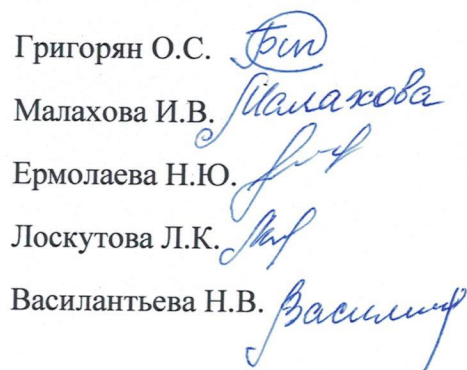 Григорян О.С.
Малахова И.В. Малахова
Ермолаева Н.Ю.
Лоскутова Л.К.
Василантьева Н.В.